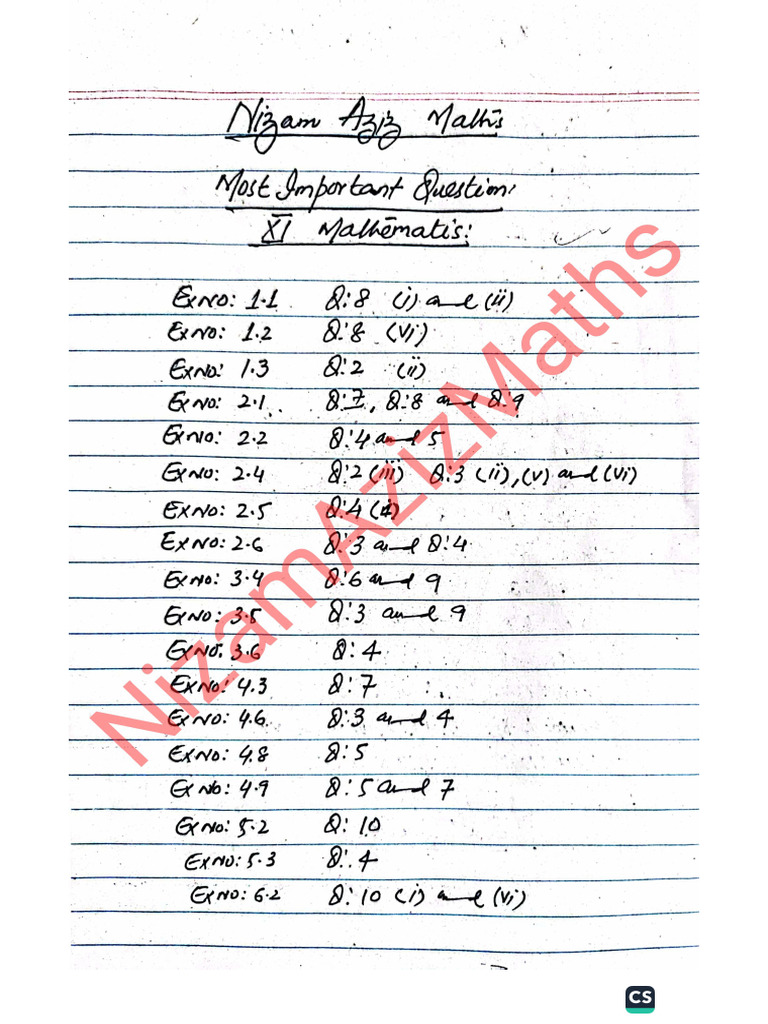 Nizam Aziz Maths
Most Important Question:
XI Mathematis:
Ex No: 1.1 Q:8 (i) and (ii)
Ex No: 1.2 Q:8 (vi)
Ex No: 1.3 Q:2 (ii)
Ex No: 2.1 Q:7, Q:8 and Q:9
Ex No: 2.2 Q:4 and 5
Ex No: 2.4 Q:2 (iii) Q:3 (ii), (v) and (vi)
Ex No: 2.5 Q:4
Ex No: 2.6 Q:3 and Q:4
Ex No: 3.4 Q:6 and 9
Ex No: 3.5 Q:3 and 9
Ex No: 3.6 Q:4
Ex No: 4.3 Q:7
Ex No: 4.6 Q:3 and 4
Ex No: 4.8 Q:5
Ex No: 4.9 Q:5 and 7
Ex No: 5.2 Q:10
Ex No: 5.3 Q:4
Ex No: 6.2 Q:10 (i) and (vi)
NizamAzizMaths
CS